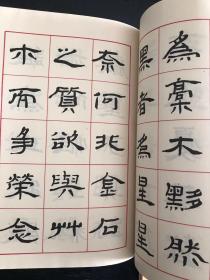 為槀木黟然
黑者為星星
奈何非金石
之質欲與艸
木而爭榮念